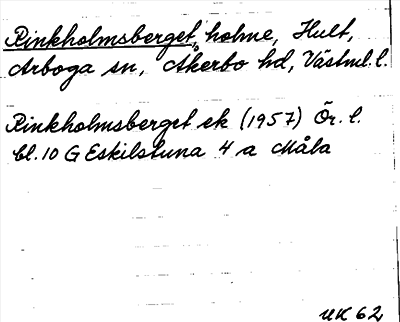 Rinkholmsberget, holme, Hult,
Arboga sn, Åkerbo hd, Västml. l.
Rinkholmsberget ek (1957) Ör. l.
bl. 10 G Eskilstuna 4 a Måla
UK 62